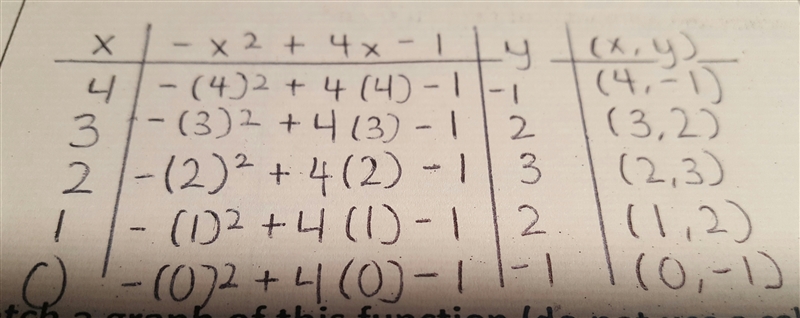 x | - x² + 4x - 1 | y | (x, y)
4 | -(4)² + 4(4) - 1 | -1 | (4, -1)
3 | -(3)² + 4(3) - 1 | 2 | (3, 2)
2 | -(2)² + 4(2) - 1 | 3 | (2,3)
1 | - (1)² + 4(1) - 1 | 2 | (1, 2)
0 | -(0)² + 4(0) - 1 | -1 | (0, -1)
a graph of this function (do not use a